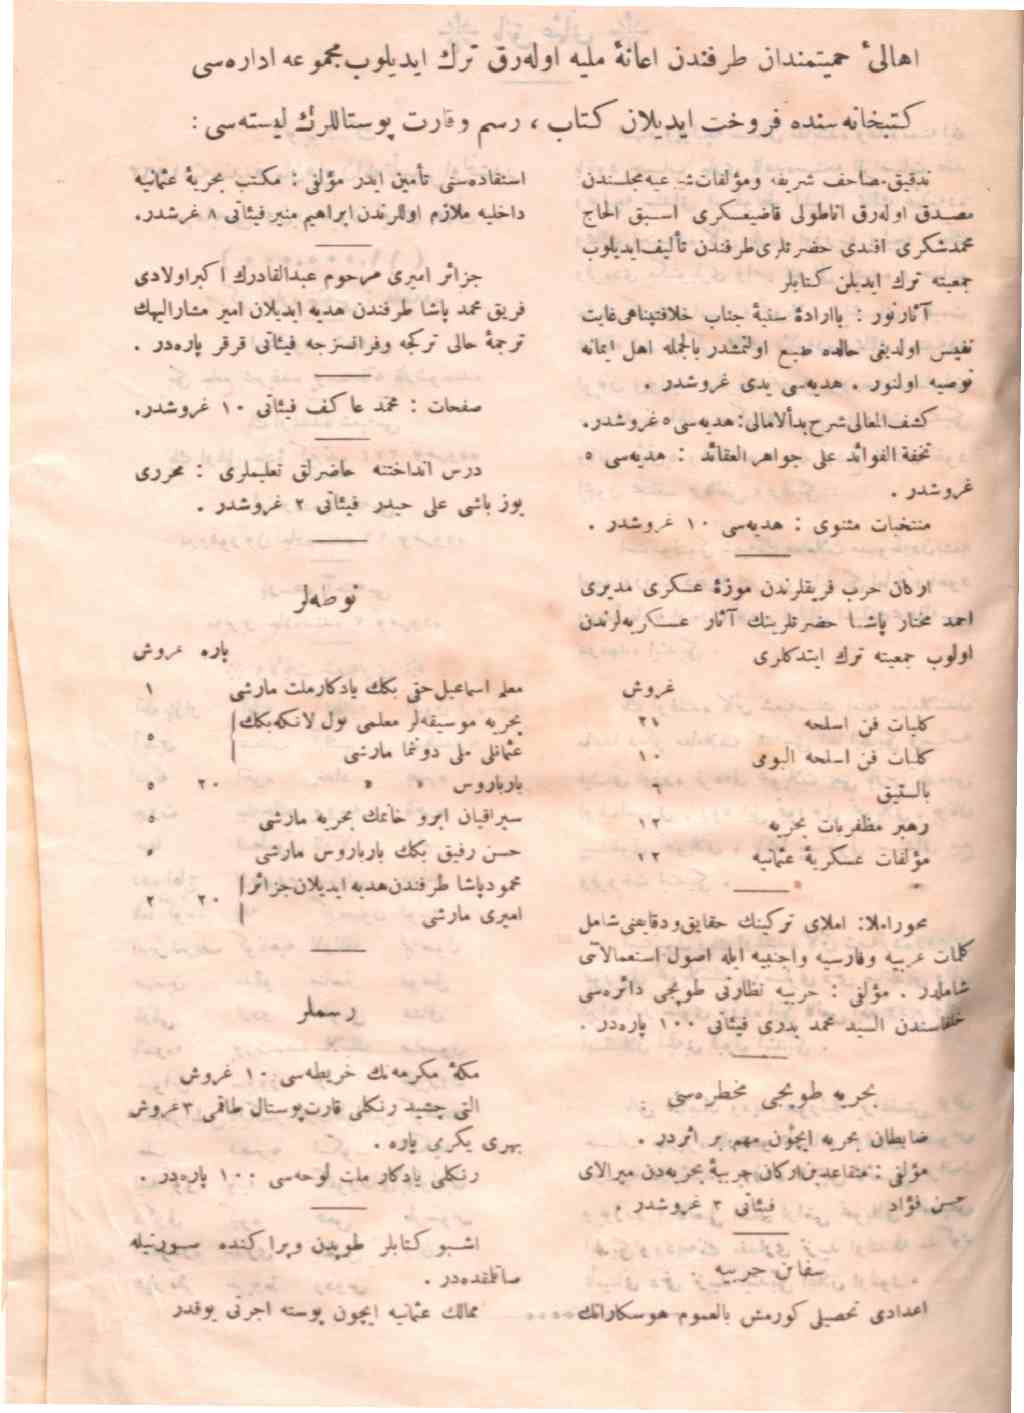 اهالئ حميتمندان طرفندن اعانۀ مليه اوله‌رق ترك ايديلوب مجموعه اداره‌سى
كتبخانه‌سنده فروخت ايديلان كتاب ، رسم وقارت پوستاللرڭ ليسته‌سى :
تدقيق مصاحف شريفه ومؤلفات شرعيه مجلسندن
مصدق اوله‌رق اناطولى قاضيعسكرى اسبق الحاج
محمد شكرى افندى حضرتلرى طرفندن تأليف ايديلوب
جمعيته ترك ايديلن كتابلر
آثار نور : باارادۀ سنيۀ جناب خلافتپناهى غايت
نفيس اولديغى حالده طبع اولنمشدر بالجمله اهل ايمانه
توصيه اولنور . هديه‌سى يدى غروشدر .
كشف المعالى شرح بدأ الامالى : هديه‌سى ٥ غروشدر.
تحفة الفوائد على جواهر العقائد : هديه‌سى ٥
غروشدر .
منتخبات مثنوى : هديه‌سى ١٠ غروشدر .
اركان حرب فريقلرندن موزۀ عسكرى مديرى
احمد مختار پاشا حضرتلرينك آثار عسكريه‌لرندن
اولوب جمعيته ترك ايتدكلرى
غروش
كليات فن اسلحه ٢١
كليات فن اسلحه البومى ١٠
بالستيق ٦
رهبر مظفريات بحريه ١٢
مؤلفات عسكريۀ عثمانيه ١٢
محور املا: املاى تركينك حقايق ودقايقنى شامل
كلمات عربيه وفارسيه واجنبيه ايله اصول استعمالاتنى
شاملدر . مؤلفى : حربيه نظارتى طوپجى دائره‌سى
خلفاسندن السيد محمد بدرى فيئاتى ١٠٠ پاره‌در .
بحريه طوپجى مخطره‌سى
ضابطان بحريه ايچون مهم بر اثردر .
مؤلفى : متقاعدين اركان حربيۀ بحريه‌دن ميرالاى
حسن فؤاد فيئاتى ٣ غروشدر .
سفائن حربيه .
اعدادى تحصيلى كورمش بالعموم هوسكارانك
استفاده‌سنى تأمين ايدر مؤلفى : مكتب بحريۀ عثمانيه
داخليه ملازم اوللرندن ابراهيم منير فيئاتى ٨ غرشدر.
جزائر اميرى مرحوم عبدالقادرك اكبر اولادى
فريق محمد پاشا طرفندن هديه ايديلان امير مشاراليهك
ترجمۀ حالى تركجه وفرانسزجه فيئاتى قرقر پاره‌در .
صفحات : محمد عاكف فيئاتى ١٠ غروشدر.
درس انداختنه حاضرلق تعليملرى : محررى
يوز باشى على حيدر فيئاتى ٢ غروشدر .
نوطه‌لر
پاره غروش
معلم اسماعيل حقى بكك يادكار ملت مارشى ١
بحريه موسيقه‌لر معلمى پول لانكه بكك
عثمانلى ملى دونما مارشى ٥
بارباروس » » ٢٠ ٥
سيراقيان ابرو خانمك بحريه مارشى ٥
حسن رفيق بكك بارباروس مارشى ٠
محمود پاشا طرفندن هديه ايديلان جزائر
اميرى مارشى ٢٠ ٢
رسملر
مكۀ مكرمه‌نك خريطه‌سى ١٠ غروش
التى چشيد رنكلى قارت پوستال طاقمى ٣ غروش
بهرى يكرمى پاره .
رنكلى يادكار ملت لوحه‌سى ١٠٠ پاره‌در .
اشبو كتابلر طوپدن وپراكنده صورتيله
صاتلمقده‌در .
ممالك عثمانيه ايچون پوسته اجرتى يوقدر